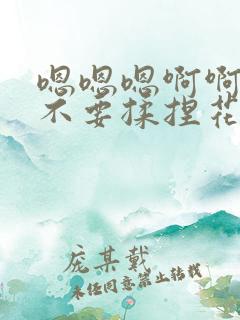 嗯嗯嗯啊啊
不要揉捏花
庞某戴
未经同意禁止转载